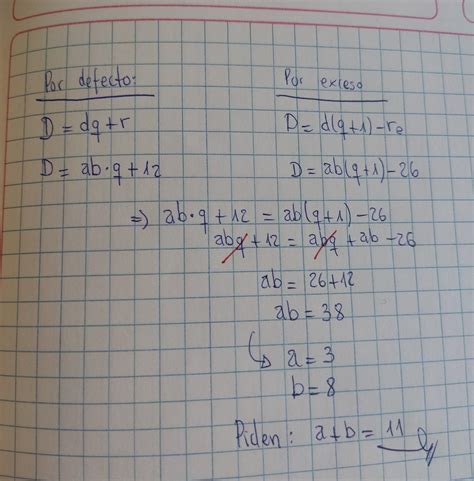 Por defecto: Por exceso
D = dq + r D = d(q+1) - re
D = ab·q + 12 D = ab(q+1) - 26
⇒ ab·q + 12 = ab(q+1) - 26
abq + 12 = abq + ab - 26
ab = 26 + 12
ab = 38
↳ a = 3
b = 8
Piden: a+b = 11